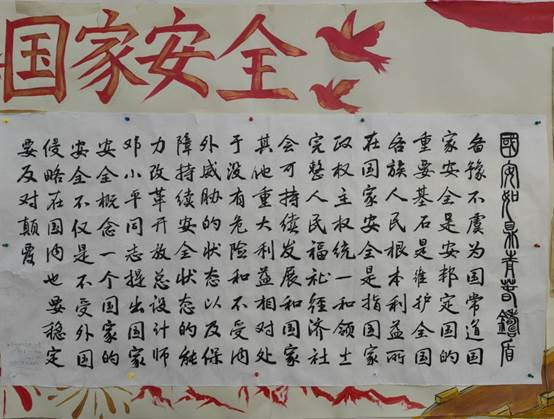 国家安全
國安如鼎青萅鑄盾
备豫不虞为国常道国
家安全是安邦定国的
重要基石是维护全国
各族人民根本利益所
在国家安全是指国家
政权主权统一和领土
完整人民福祉经济社
会可持续发展和国家
其他重大利益相对处
于没有危险和不受内
外威胁的状态以及保
障持续安全状态的能
力改革开放总设计师
邓小平同志提出国家
安全概念一个国家的
安全不仅是不受外国
侵略在国内也要稳定
要反对颠覆